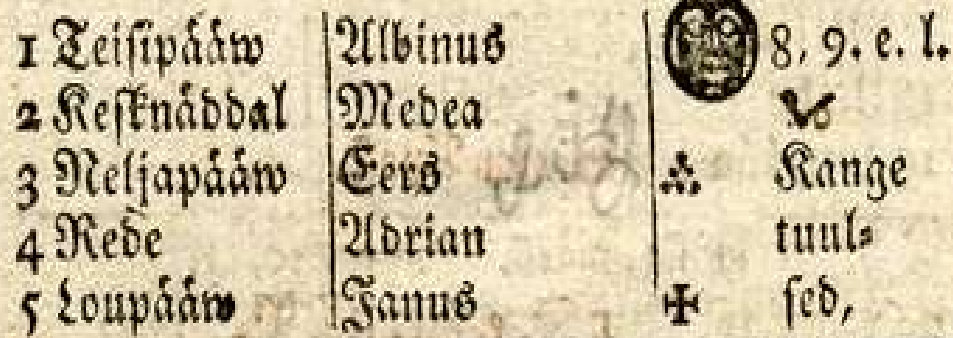 1 Teisipääw Albinus 8, 9. e. l.
2 Keſknäddal Medea
3 Neljapääw Eers Kange
4 Rede Adrian tuul⸗
5 Loupääw Janus ſed,